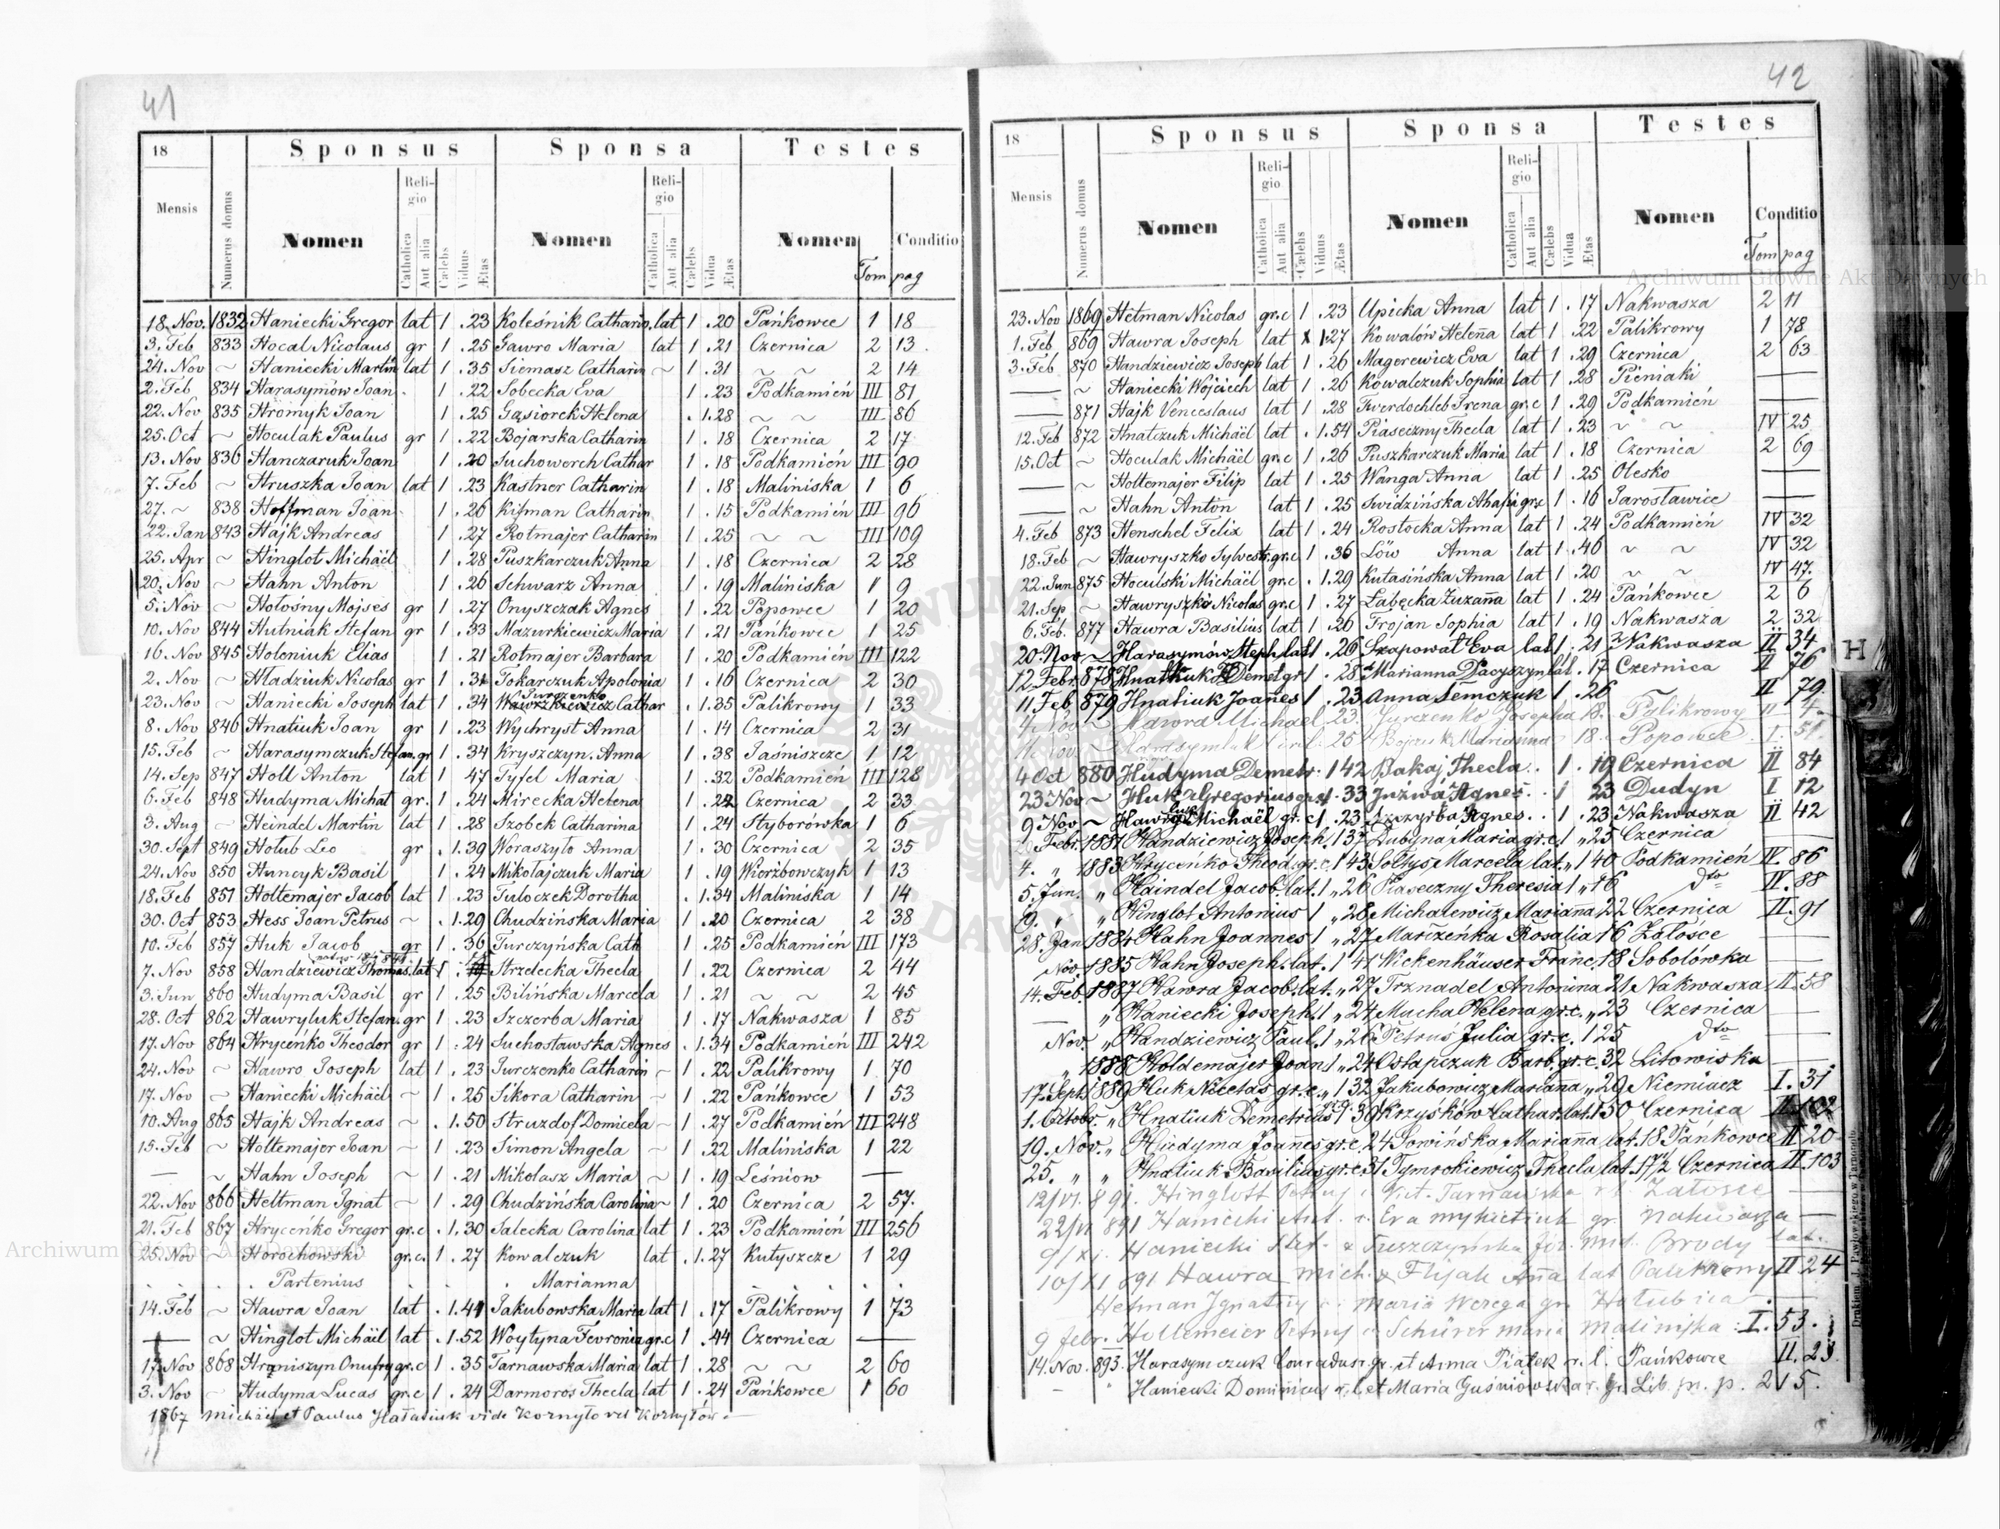 41
18 Sponsus Sponsa Testes
Mensis Numerus domus Nomen Religio Catholica Aut alia Cælebs Viduus Ætas Nomen Religio Catholica Aut alia Cælebs Vidua Ætas Nomen Conditio
Tom pag
18. Nov. 1832 Haniecki Gregor lat 1 . 23 Koleśnik Catharin. lat 1 . 20 Pańkowce 1 18
3. Feb 833 Hocal Nicolaus gr 1 . 25 Jawro Maria lat 1 . 21 Czernica 2 13
24. Nov ~ Haniecki Martin lat 1 . 35 Siemasz Catharin ~ 1 . 31 ~ ~ 2 14
2. Feb 834 Harasymów Joan . 1 . 22 Sobecka Eva 1 . 23 Podkamień III 81
22. Nov 835 Hromyk Joan 1 . 25 Gąsiorek Helena . 1.28 ~ ~ III 86
25. Oct ~ Hoculak Paulus gr 1 . 22 Bojarska Catharin 1 . 18 Czernica 2 17
13. Nov 836 Hanczaruk Joan 1 . 20 Suchoworch Cathar 1 . 18 Podkamień III 90
7. Feb ~ Hruszka Joan lat 1 . 23 Kastner Catharin 1 . 18 Maliniska 1 6
27. ~ 838 Hoffman Joan 1 . 26 Kisman Catharin 1 . 15 Podkamień III 96
22. Jan 843 Hajk Andreas 1 . 27 Rotmajer Catharin 1 . 25 ~ ~ III 109
25. Apr ~ Hinglot Michäel 1 . 28 Puszkarczuk Anna 1 . 18 Czernica 2 28
20. Nov ~ Hahn Anton 1 . 26 Schwarz Anna 1 . 19 Maliniska 1 9
5. Nov ~ Hołośny Mojses gr 1 . 27 Onyszczak Agnes 1 . 22 Popowce 1 20
10. Nov 844 Hutniak Stefan gr 1 . 33 Mazurkiewicz Maria 1 . 21 Pańkowce 1 25
16. Nov 845 Holeniuk Elias 1 . 21 Rotmajer Barbara 1 . 20 Podkamień III 122
2. Nov ~ Hladziuk Nicolas gr 1 . 31 Tokarczuk Apolonia 1 . 16 Czernica 2 30
23. Nov ~ Haniecki Joseph lat 1 . 34 Wawrzkiewicz Jurczenko Cathar . 1.35 Palikrowy 1 33
8. Nov 846 Hnatiuk Joan gr 1 . 23 Wychryst Anna 1 . 14 Czernica 2 31
15. Feb ~ Harasymczuk Stefan. gr 1 . 34 Kryszczyn. Anna 1 . 38 Jaśniszcze 1 12
14. Sep 847 Holl Anton lat 1 47 Tysel Maria 1 . 32 Podkamień III 128
6. Feb 848 Hudyma Michał gr. 1 . 24 Mirecka Helena 1 . 22 Czernica 2 33
3. Aug ~ Heindel Martin lat 1 . 28 Szobek Catharina 1 . 24 Hyborówka 1 6
30. Sept 849 Holub Leo gr . 1.39 Woraszyło Anna 1 . 30 Czernica 2 35
24. Nov 850 Huncyk Basil 1 . 24 Mikołajczuk Maria 1 . 19 Wierzbowczyk 1 13
18. Feb 851 Holtemajer Jacob lat 1 . 23 Tuloczek Dorotha . 1.34 Maliniska 1 14
30. Oct 853 Hess Joan Petrus ~ . 1.29 Chudzińska Maria 1 . 20 Czernica 2 38
10. Feb 857 Huk Jacob gr 1 . 36 Turczyńska Cath 1 . 25 Podkamień III 173
7. Nov 858 Handziewicz Thomas. lat 1 . Strzelecka Thecla 1 . 22 Czernica 2 44
3. Jun 860 Hudyma Basil gr 1 . 25 Bilińska Marcela 1 . 21 ~ ~ 2 45
28. Oct 862 Hawryluk Stefan. gr 1 . 23 Szczerba Maria 1 . 17 Nakwasza 1 85
17. Nov 864 Hryceńko Theodor gr 1 . 24 Suchosławska Agnes . 1.34 Podkamień III 242
24. Nov ~ Hawro Joseph lat 1 . 23 Jurczenko Catharin ~ 1 . 22 Palikrowy 1 70
17. Nov ~ Haniecki Michäel ~ 1 . 25 Sikora Catharin ~ 1 . 22 Pańkowce 1 53
10. Aug 865 Hajk Andreas ~ . 1.50 Struzdof Domicela ~ 1 . 27 Podkamień III 248
15. Feb ~ Holtemajer Joan ~ 1 . 23 Simon Angela ~ 1 . 22 Maliniska 1 22
— ~ Hahn Joseph ~ 1 . 21 Mikolasz Maria ~ 1 . 19 Leśniow —
22. Nov 866 Heltman Ignat ~ 1 . 29 Chudzińska Carolina ~ 1 . 20 Czernica 2 57.
21. Feb 867 Hryceńko Gregor gr. c . 1.30 Salecka Carolina lat 1 . 23 Podkamień III 256
25. Nov ~ Horochowski gr. c. 1 . 27 Kowalczuk lat . 1.27 Kutyszcze 1 29
Partenius Marianna
14. Feb ~ Hawra Joan lat . 1.41 Jakubowska Maria lat 1 . 17 Palikrowy 1 73
— ~ Hinglot Michäel lat . 1.52 Woytyna Fevronia gr. c 1 . 44 Czernica —
17. Nov 868 Hraniszyn Onufry gr. c 1 . 35 Tarnawska Maria lat 1 . 28 ~ ~ 2 60
3. Nov ~ Hudyma Lucas gr. c 1 . 24 Darmoroś Thecla lat 1 . 24 Pańkowce 1 60
1867 Michäel et Paulus Hałasiuk vide Kornyło vel Kornyłów
42
18 Sponsus Sponsa Testes
Mensis Numerus domus Nomen Religio Catholica Aut alia Cælebs Viduus Ætas Nomen Religio Catholica Aut alia Cælebs Vidua Ætas Nomen Conditio
Tom pag
23. Nov 1869 Hetman Nicolas gr. c 1 . 23 Upicka Anna lat 1 . 17 Nakwasza 2 11
1. Feb 869 Hawra Joseph lat 1.27 Kowalów Heleña lat 1 . 22 Palikrowy 1 78
3. Feb 870 Handziewicz Joseph lat 1 . 26 Magerewicz Eva lat 1 . 29 Czernica 2 63
— ~ Haniecki Wojciech lat 1 . 26 Kowalczuk Sophia lat 1 . 28 Pieniaki —
— 871 Hajk Venceslaus lat 1 . 28 Twerdochleb Irena gr. c 1 . 29 Podkamień —
12. Feb 872 Hnatczuk Michäel lat . 1.54 Piaseczny Thecla lat 1 . 23 ~ ~ IV 25
15. Oct ~ Hoculak Michäel gr. c 1 . 26 Puszkarczuk Maria lat 1 . 18 Czernica 2 69
— ~ Holtemajer Filip lat 1 . 25 Wanga Anna lat 1 . 25 Olesko —
— ~ Hahn Anton lat 1 . 25 Swidzińska Ahafia gr. c 1 . 16 Jarosławice —
4. Feb 873 Henschel Felix lat 1 . 24 Rostocka Anna lat 1 . 24 Podkamień IV 32
18. Feb ~ Hawryszko Sylvestr. gr. c 1 . 36 Löw Anna lat 1 . 46 ~ ~ IV 32
22. Jun 875 Hoculski Michäel gr. c . 1.29 Kutasińska Anna lat 1 . 20 ~ ~ IV 47.
21. Sep ~ Hawryszko Nicolas gr. c 1 . 27 Łabęcka Zuzaña lat 1 . 24 Pańkowce 2 6
6. Feb. 877 Hawra Basilius lat 1 . 26 Trojan Sophia lat 1 . 19 Nakwasza 2 32
20. Nov ~ Harasymów Steph. lat 1 . 26 Szapowat Eva lat 1 . 21 Nakwasza II 34
12 Febr. 878 Hnatiuk Demet gr 1 . 28 Marianna lat . 17 Czernica II 76
11. Feb 879 Hnatiuk Joañes 1 . 23 Anna Semczuk 1 . 26 II 79.
4. Nov ~ Hawra Michael 23. Jurczenko Josepha 18. Palikrowy II 4.
11. Nov. 25 Marianna 18. Popowce I. 51.
4 Oct 880 Hudyma Demetr. 1 42 Bakaj Thecla . 1 . 19 Czernica II 84
23 Nov ~ Huk Gregorius gr. c 1 . 33 Juźwa Agnes . 1 23 Dudyn I 12
9 Nov ~ Michäel gr. c 1 . 23 Szczyrba Agnes . . 1 . 23 Nakwasza II 42
Febr. 1881 Handziewicz Joseph. 1 37 Dubyna Maria gr. c. 1 „ 25 Czernica
4. „ 1883 Hryceńko Theod. gr. c. 1 43 Sołtys Marcela lat. „ 1 40 Podkamień IV. 86
5. Jun. „ Haindel Jacob. lat. 1 „ 26 Piaseczny Theresia 1 „ 16 dto IV. 88
9. „ „ Hinglot Antonius 1 „ 28 Michalewicz Mariaña 22 Czernica II. 91
28. Jan 1884 Hahn Joannes 1 „ 27 Marczeńka Rosalia 16 Załosce —
Nov. 1885 Hahn Joseph. lat. 1 41 Wickenhäuser Franc. 18 Sobolówka —
14. Feb. 1887 Hawra Jacob. lat. „ 27 Trznadel Antonina 21 Nakwasza II. 58
— „ Haniecki Joseph. 1 „ 24 Mucha Helena gr. c. „ 23 Czernica —
Nov. „ Handziewicz Paul. 1 „ 26 Petruś Julia gr. c. 1 25 dto —
„ 1888 Holdemajer Joan 1 „ 24 Ostapczuk Barb. gr. c. 32 Litowiska —
17. Sept. 1889 Huk Nicetas gr. c. „ 1 32 Jakubowicz Mariana „ 29 Niemiacz I. 31
1. Octobr. „ Hnatiuk Demetrius 1 39 Krzyśków Cathar. lat. 1 30 Czernica II. 102
19. Nov. „ Hudyma Joañes gr. c 24 Sowińska Mariaña lat. 18 Pańkowce II 20
25. „ „ Hnatiuk Basilius gr. c 31 Tymockiewicz Thecla lat. 17½ Czernica II. 103
12/VI. 891. Hinglott Petrus Tarnawska Załosce —
22/VI 891 Haniecki Ant. Eva Mykietiuk gr. Nakwasza —
9/XI. Haniecki Tuszczyńska Brody lat.
10/XI 891 Hawra Mich. & Elijak Aña lat Palikrowy II 24
Hetman Ignatius Maria Werega gr. Hołubica —
9 febr. Holtemeier Petrus Schürer Maria Maliniska I. 53.
14. Nov. 893. Harasymczuk Conradus gr. et Anna Piątek r. l. Pańkowce II. 23
Haniecki Dominicus r. l. et Maria Guśniowska r. gr. Lib. pr. p. 215.
H
Archiwum Główne Akt Dawnych
Archiwum Główne Akt Dawnych
Drukiem J. Pawłowskiego w Tarnopolu